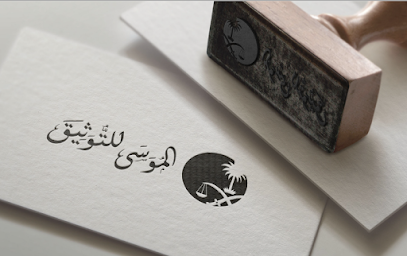 الموسى للتوثيق